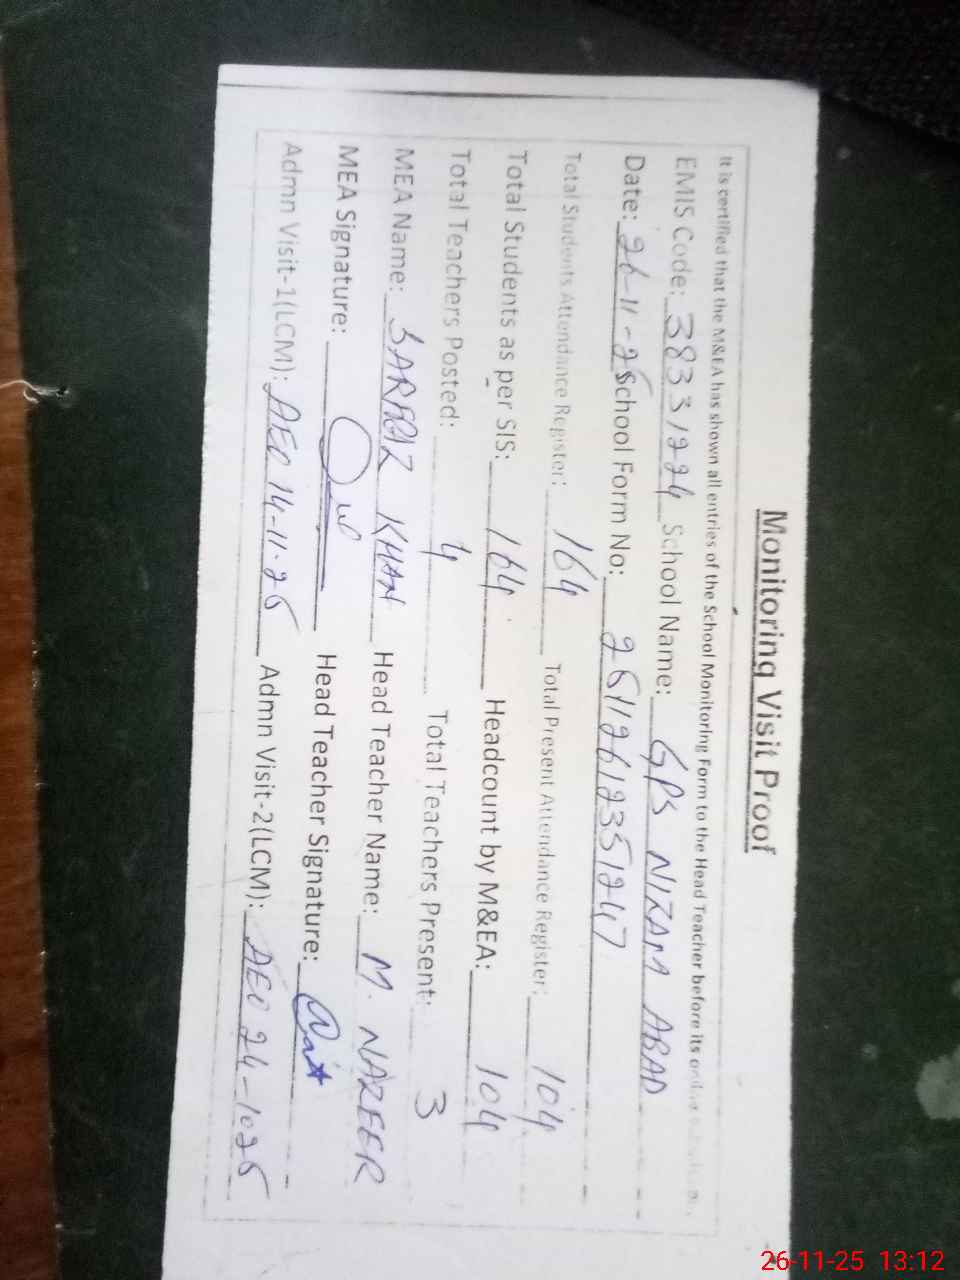 Monitoring Visit Proof
It is certified that the M&EA has shown all entries of the School Monitoring Form to the Head Teacher before its online
EMIS Code: 38331224 School Name: GPS NIZAM ABAD
Date: 26-11-25 School Form No: 25112612351247
Total Students Attendance Register: 164 Total Present Attendance Register: 104
Total Students as per SIS: 164 Headcount by M&EA: 104
Total Teachers Posted: 4 Total Teachers Present: 3
MEA Name: KHAN Head Teacher Name: M. NAZEER
MEA Signature: Head Teacher Signature:
Admn Visit-1(LCM): AEO 14-11-25 Admn Visit-2(LCM): AEO 24-1025
26-11-25 13:12